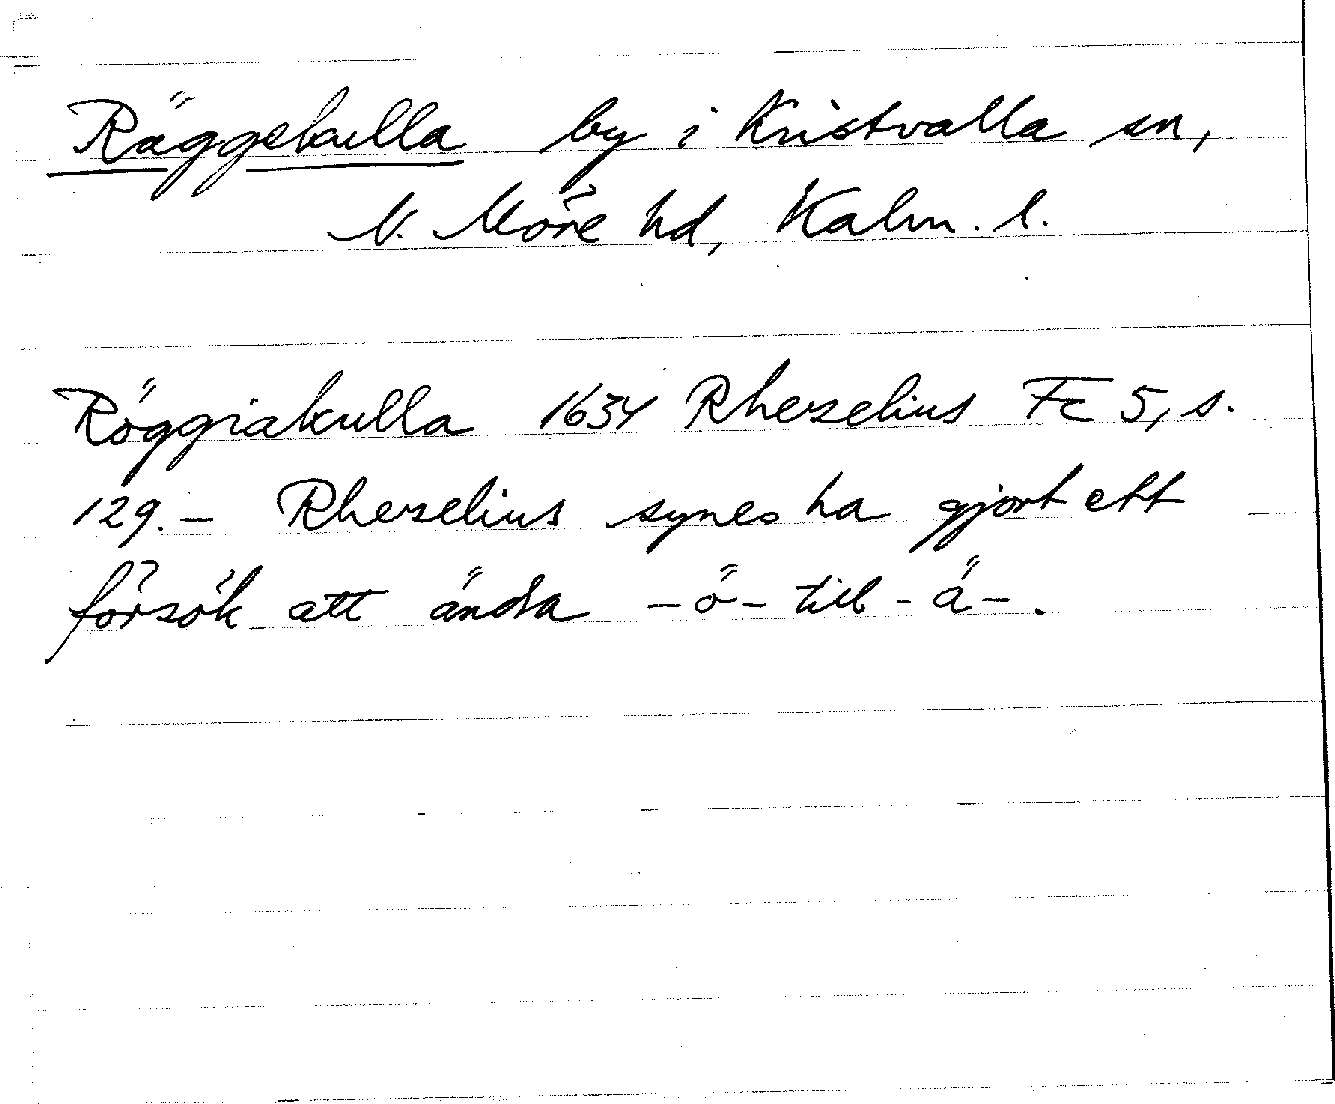 Räggekulla by i Kristvalla sn,
N. Möre hd, Kalm. l.
Röggiakulla 1634 Rhezelius Fc 5, s.
129. – Rhezelius synes ha gjort ett
försök att ändra -ö- till -ä-.